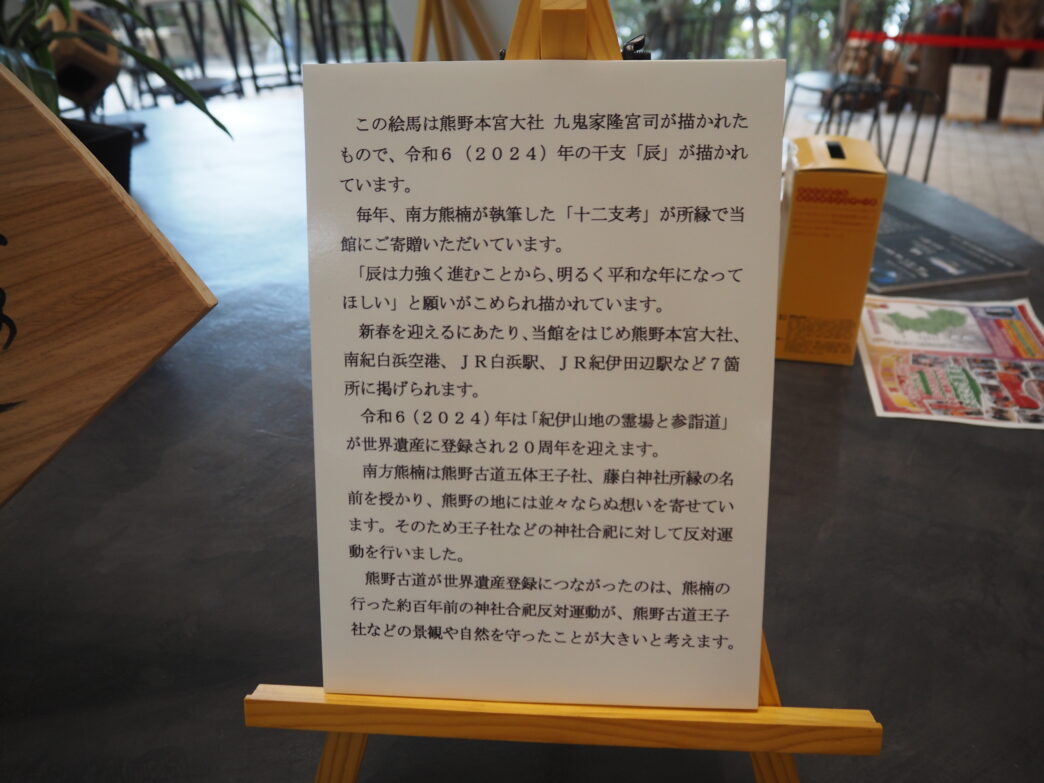 この絵馬は熊野本宮大社 九鬼家隆宮司が描かれた
もので、令和６（２０２４）年の干支「辰」が描かれ
ています。
毎年、南方熊楠が執筆した「十二支考」が所縁で当
館にご寄贈いただいています。
「辰は力強く進むことから、明るく平和な年になって
ほしい」と願いがこめられ描かれています。
新春を迎えるにあたり、当館をはじめ熊野本宮大社、
南紀白浜空港、ＪＲ白浜駅、ＪＲ紀伊田辺駅など７箇
所に掲げられます。
令和６（２０２４）年は「紀伊山地の霊場と参詣道」
が世界遺産に登録され２０周年を迎えます。
南方熊楠は熊野古道五体王子社、藤白神社所縁の名
前を授かり、熊野の地には並々ならぬ想いを寄せてい
ます。そのため王子社などの神社合祀に対して反対運
動を行いました。
熊野古道が世界遺産登録につながったのは、熊楠の
行った約百年前の神社合祀反対運動が、熊野古道王子
社などの景観や自然を守ったことが大きいと考えます。